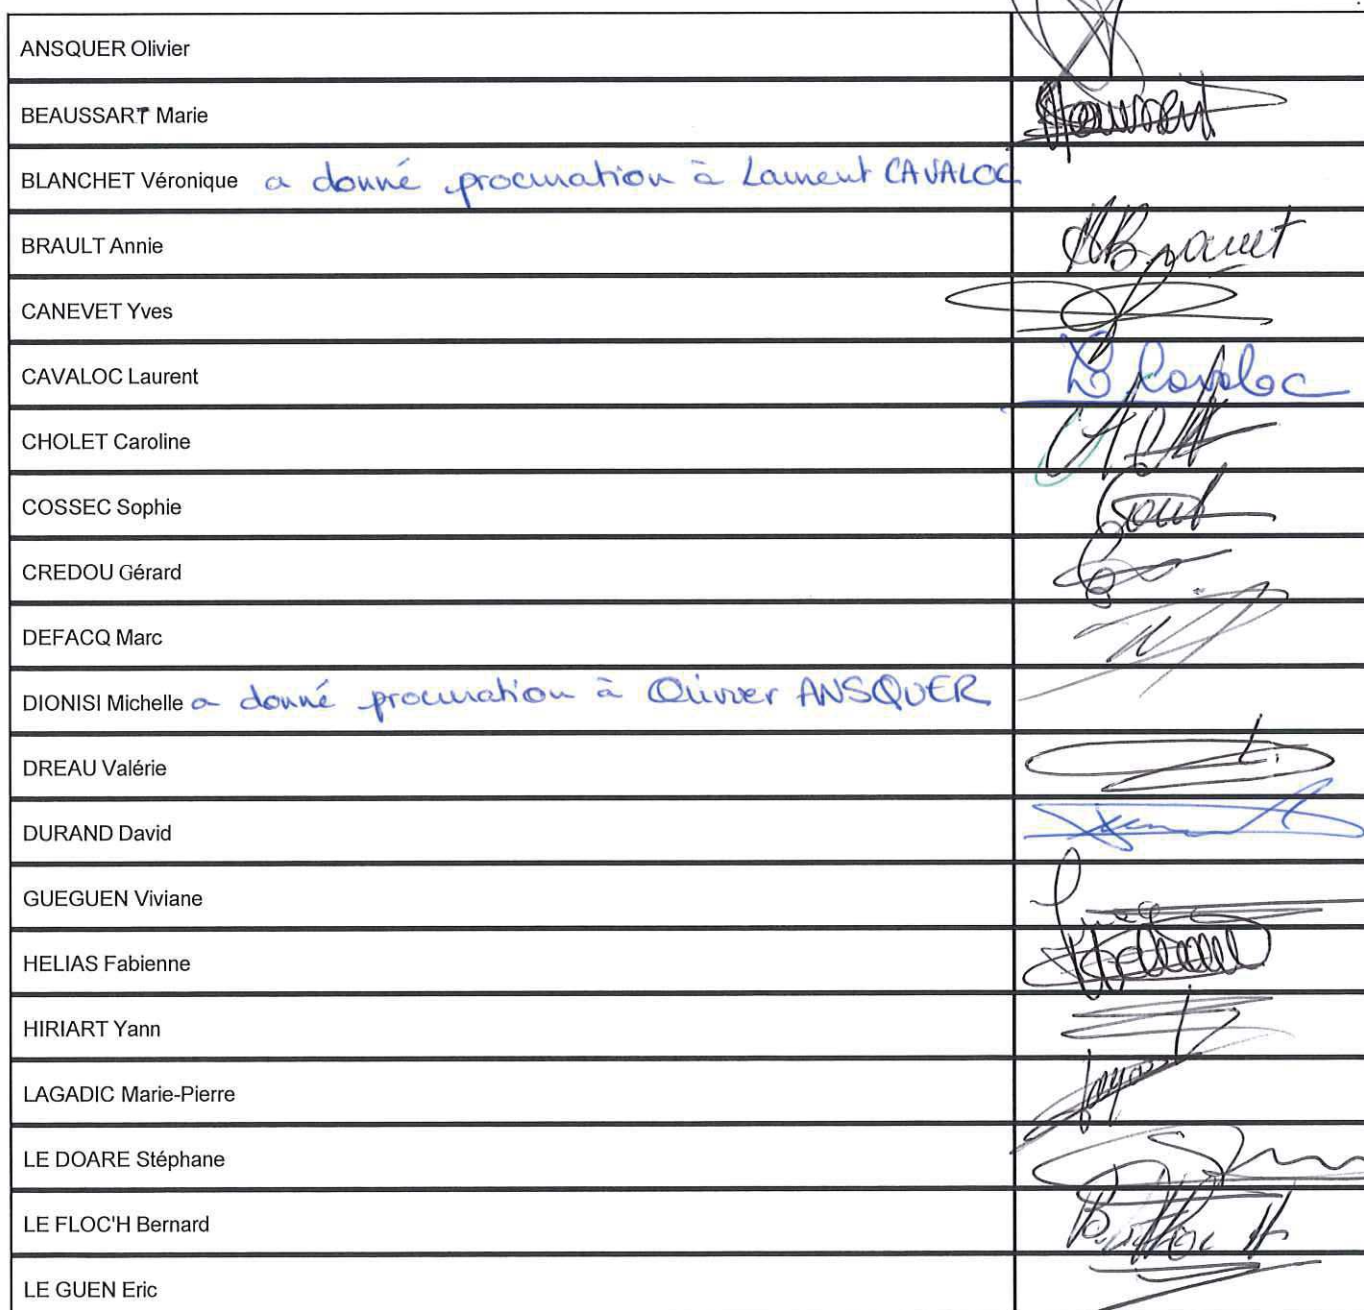 ANSQUER Olivier
BEAUSSART Marie
BLANCHET Véronique a donné procuration à Laurent CAVALOC
BRAULT Annie
CANEVET Yves
CAVALOC Laurent L Cavaloc
CHOLET Caroline
COSSEC Sophie
CREDOU Gérard
DEFACQ Marc
DIONISI Michelle a donné procuration à Olivier ANSQUER
DREAU Valérie
DURAND David
GUEGUEN Viviane
HELIAS Fabienne
HIRIART Yann
LAGADIC Marie-Pierre
LE DOARE Stéphane
LE FLOC'H Bernard
LE GUEN Eric